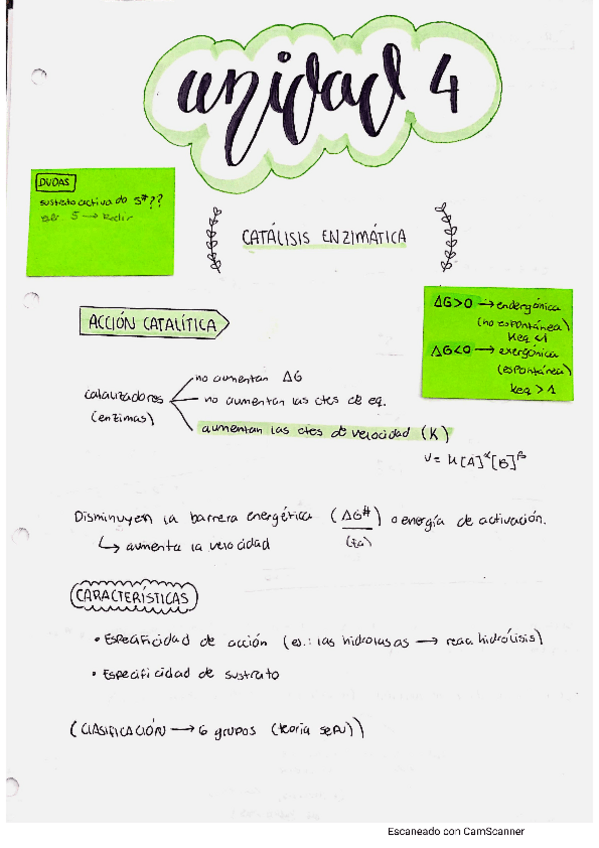 unidad 4
DUDAS
sustrato activado S#??
S → 
CATÁLISIS ENZIMÁTICA
ΔG>0 → endergónica
(no espontánea)
Keq <1
ΔG<0 → exergónica
(espontánea)
Keq > 1
ACCIÓN CATALÍTICA
catalizadores
(enzimas)
no aumentan ΔG
no aumentan las ctes de eq.
aumentan las ctes de velocidad (K)
V = K[A]^α[B]^β
Disminuyen la barrera energética (ΔG#) o energía de activación.
(Ea)
↳ aumenta la velocidad
CARACTERÍSTICAS
• Especificidad de acción (ej.: las hidrolasas → reacc hidrólisis)
• Especificidad de sustrato
(CLASIFICACIÓN → 6 grupos (teoría sepu))
Escaneado con CamScanner